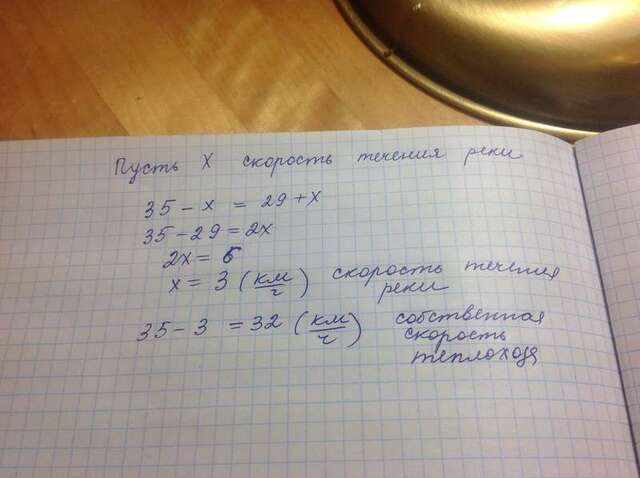 Пусть X скорость течения реки
35 - x = 29 + x
35 - 29 = 2x
2x = 6
x = 3 (км/ч) скорость течения реки
35 - 3 = 32 (км/ч) собственная
скорость
теплохода